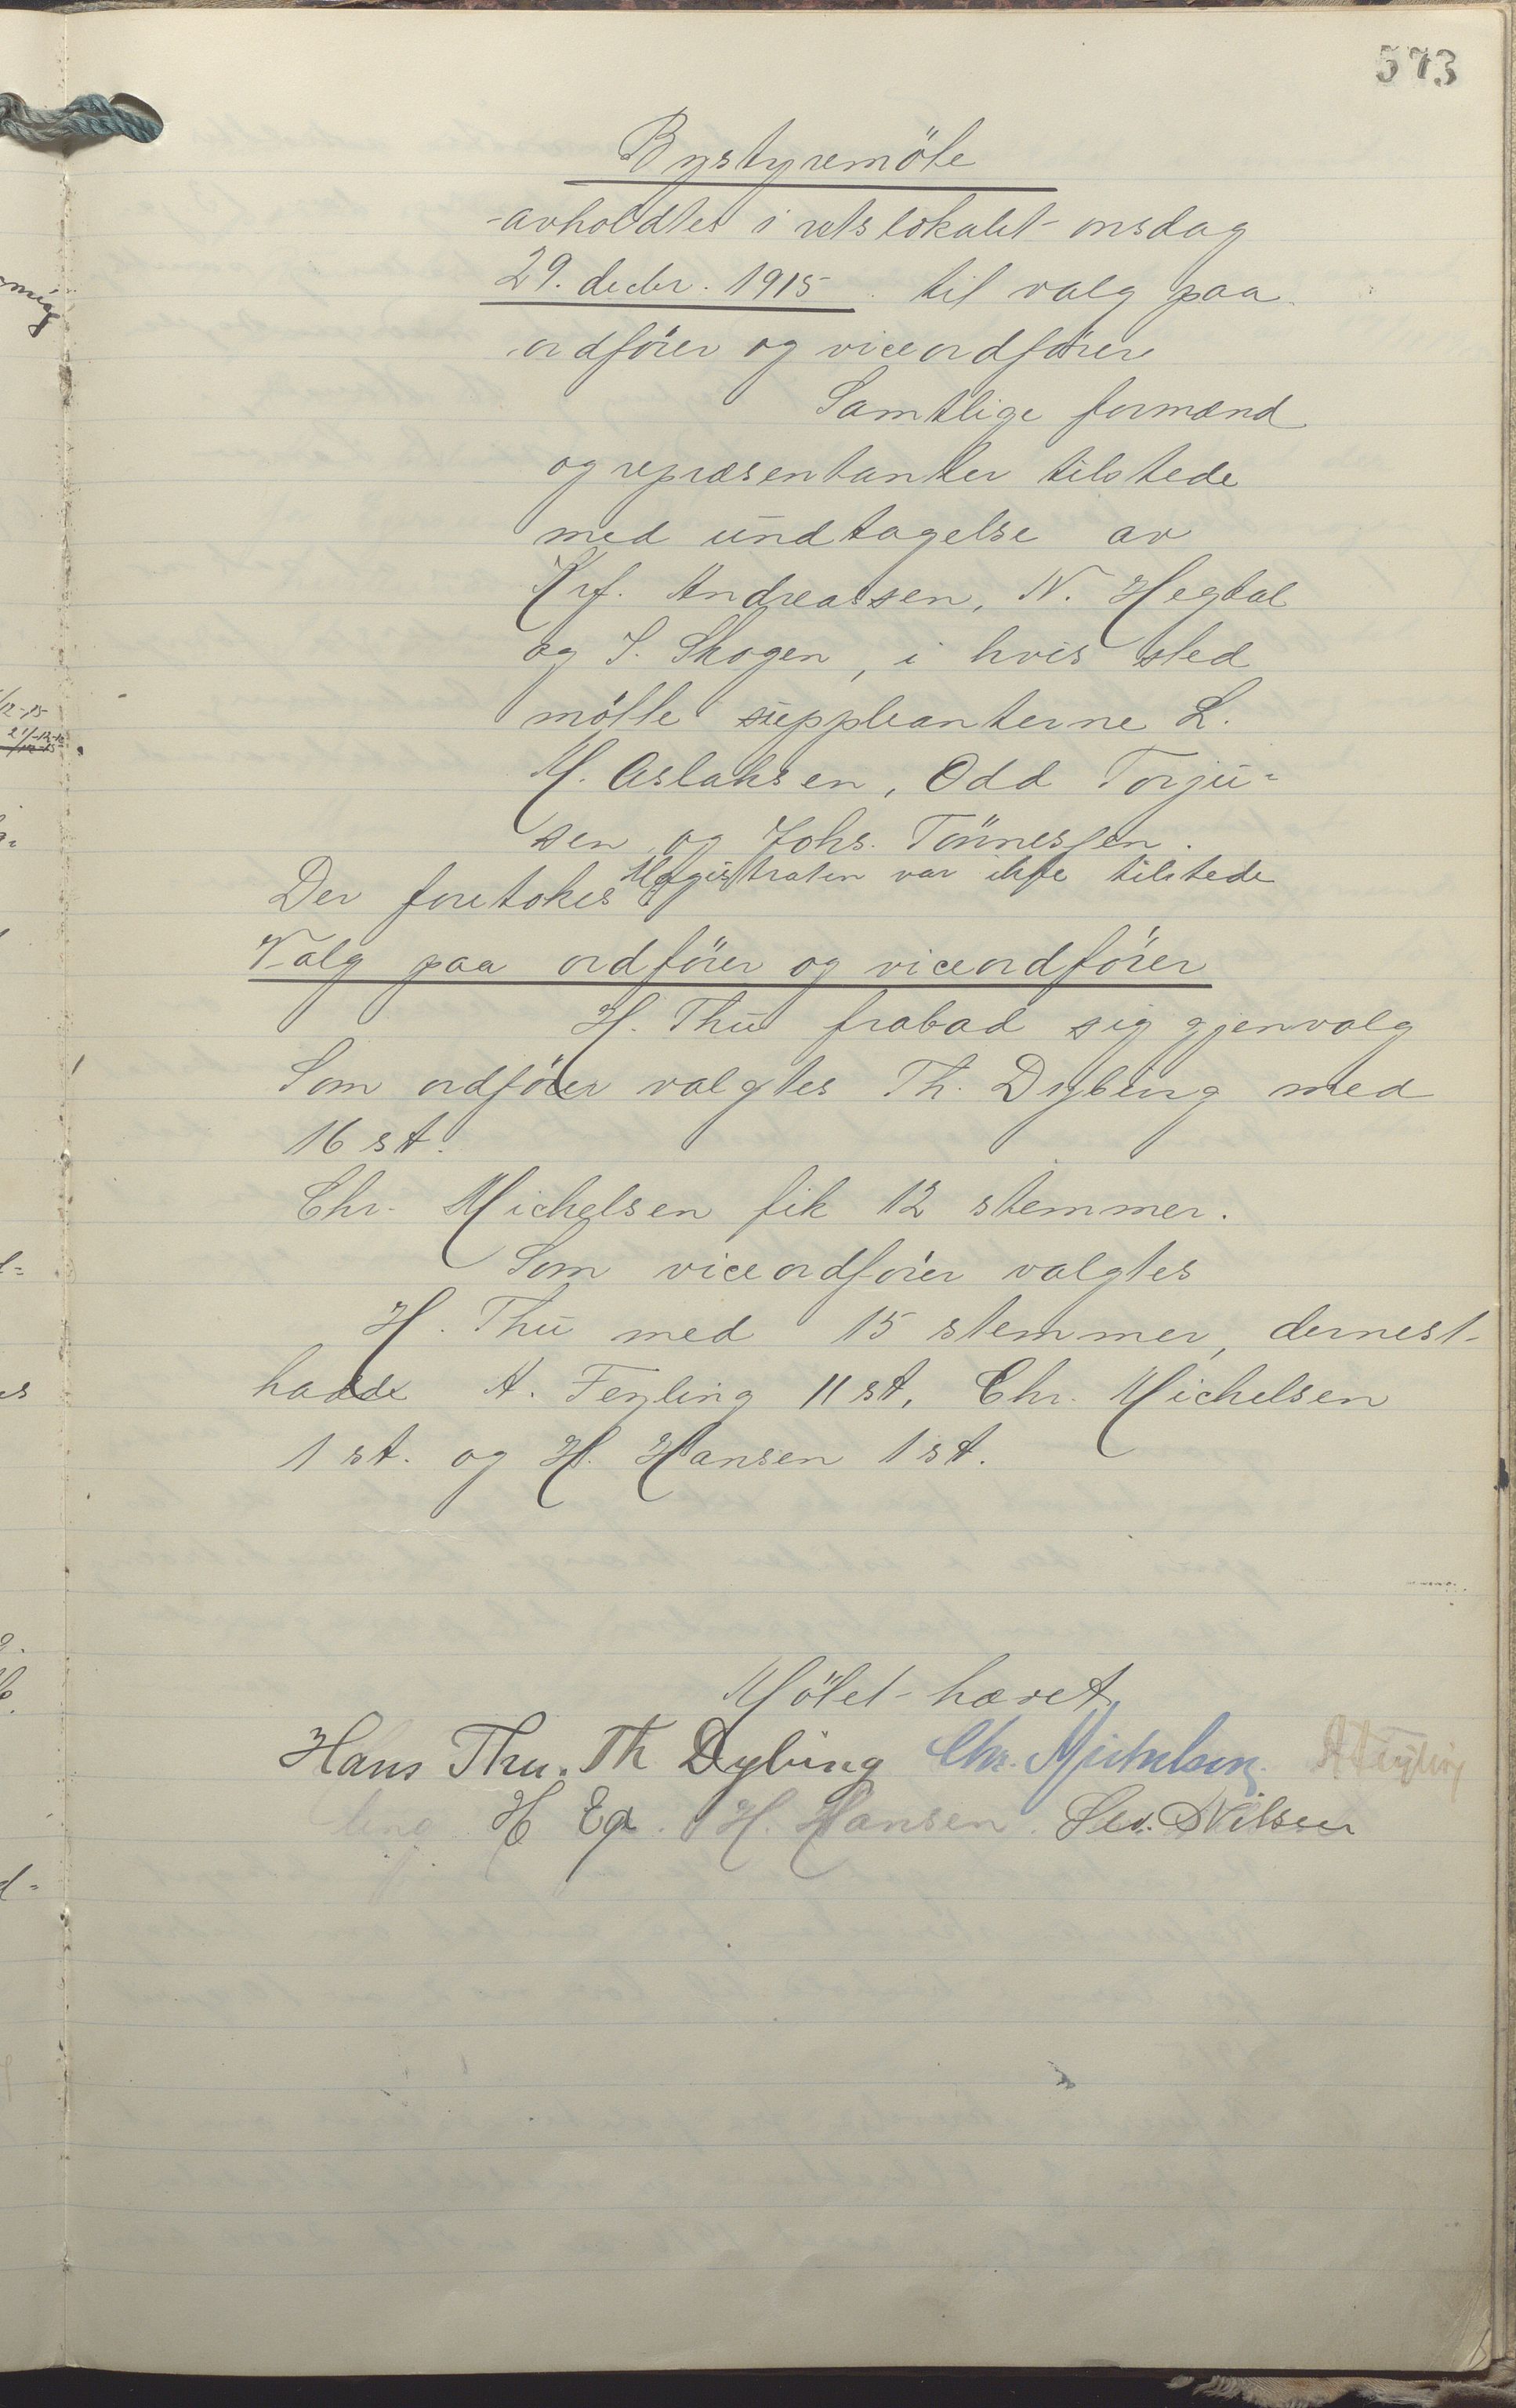 573
Bystyremöte
avholdtes i retslokalet onsdag
29. decbr. 1915 til valg paa
ordförer og viceordförer
Samtlige formænd
og repræsentanter tilstede
med undtagelse av
Krf. Andreassen, N. Hegdal
og S. Skogen, i hvis sted
mötte suppleanterne L.
M. Aslaksen, Odd Torju=
sen og Johs. Tönnessen.
Magistraten var ikke tilstede
Der foretokes
Valg paa ordförer og viceordförer
H. Thu frabad sig gjenvalg
Som ordförer valgtes Th. Dybing med
16 st.
Chr. Michelsen fik 12 stemmer.
Som viceordförer valgtes
H. Thu med 15 stemmer, dernest
hadde A. Feyling 11 st, Chr. Michelsen
1 st. og H. Hansen 1 st.
Mötet hævet
Hans Thu. Th Dybing Chr. Michelsen. A Feyling
H. Hansen. Nilsen